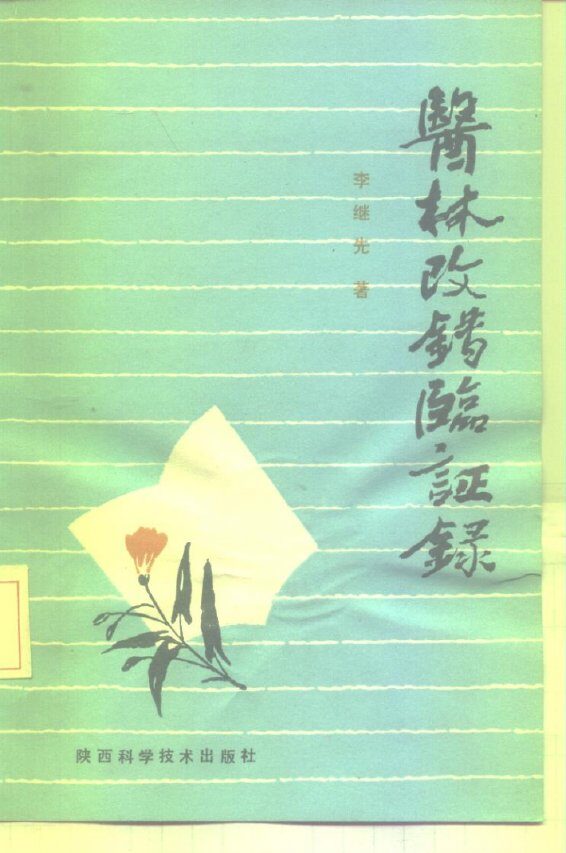 醫林改錯臨証録
李继先 著
陕西科学技术出版社